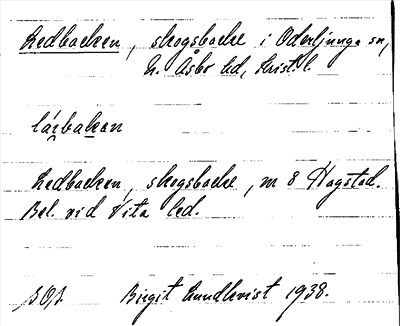 Ledbacken, skogsbacke i Oderljunga sn,
N. Åsbo hd, Krist. l.
Ledbacken, skogsbacke, m 8 Hagstad.
Bel. vid Vita led.
Birgit Lundkvist 1938.